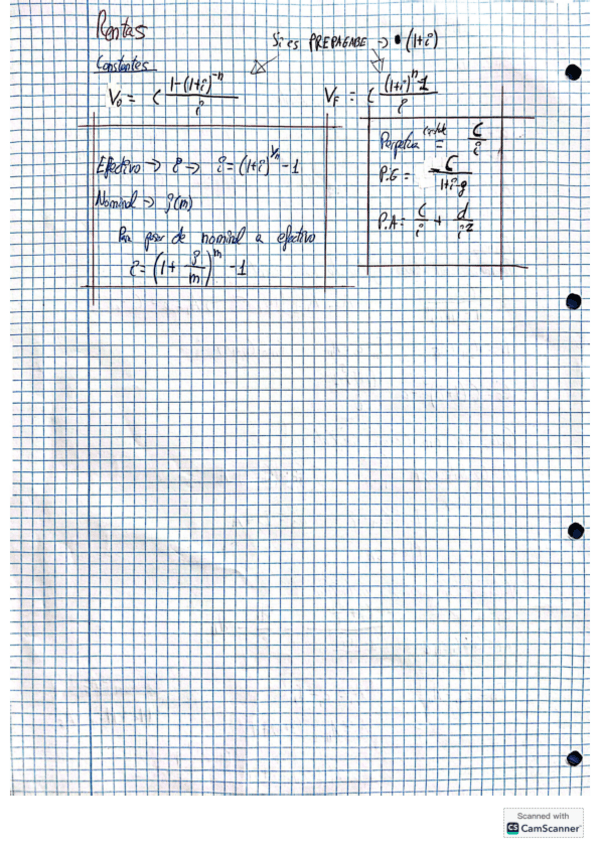 Rentas
Si es PREPAGABE → • (1+i)
Constantes
V₀ = C (1-(1+i)^-n)/i
V_F = C ((1+i)^n - 1)/i
Efectivo → i → i = (1+i)^(1/n) - 1
Nominal → j(m)
Para pasar de nominal a efectivo
i = (1 + j/m)^m - 1
Perpetua = C/i
P.G = C/(1+i-g)
P.A = C/i + d/i²
Scanned with
CS CamScanner